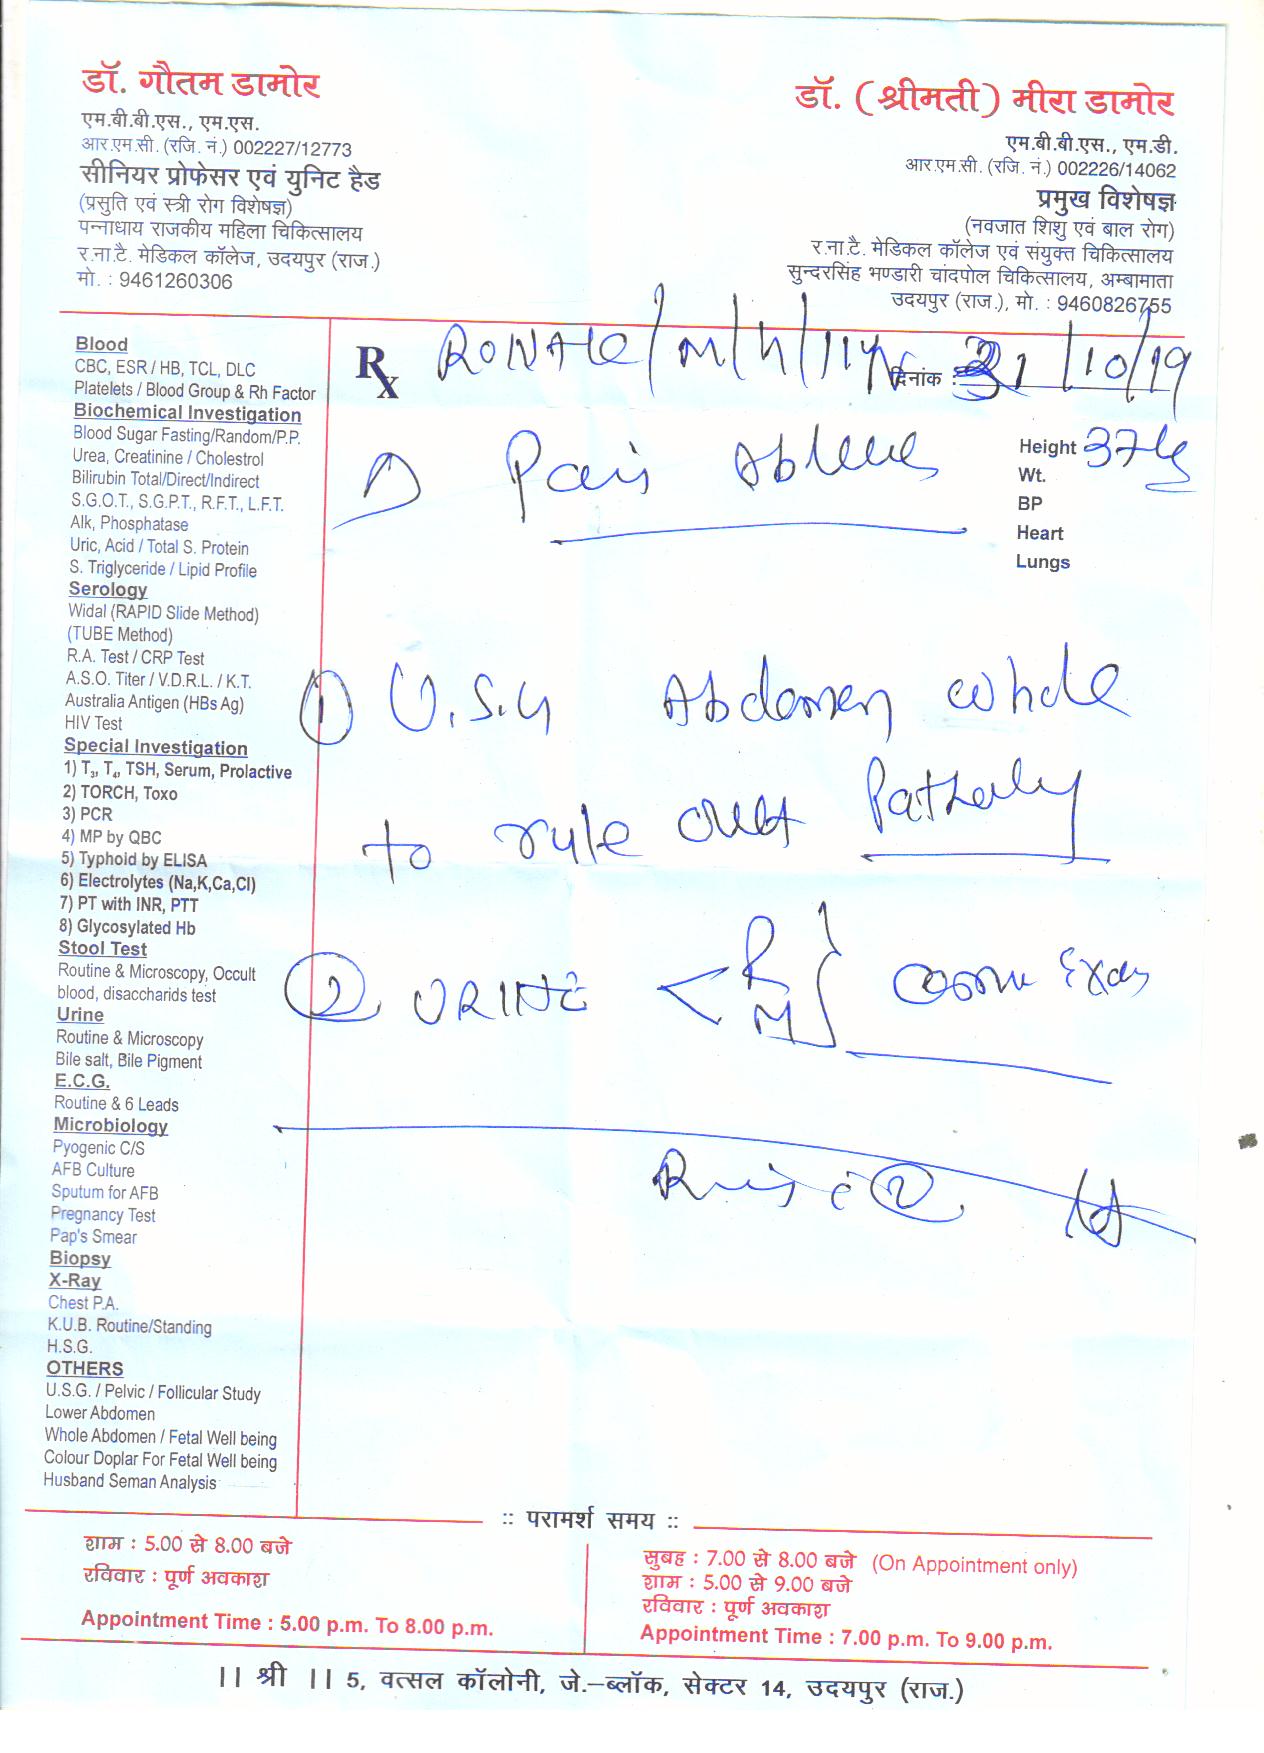 डॉ. गौतम डामोर
एम.बी.बी.एस., एम.एस.
आर.एम.सी. (रजि. नं.) 002227/12773
सीनियर प्रोफेसर एवं युनिट हैड
(प्रसुति एवं स्त्री रोग विशेषज्ञ)
पन्नाधाय राजकीय महिला चिकित्सालय
र.ना.टै. मेडिकल कॉलेज, उदयपुर (राज.)
मो. : 9461260306
डॉ. (श्रीमती) मीरा डामोर
एम.बी.बी.एस., एम.डी.
आर.एम.सी. (रजि. नं.) 002226/14062
प्रमुख विशेषज्ञ
(नवजात शिशु एवं बाल रोग)
र.ना.टै. मेडिकल कॉलेज एवं संयुक्त चिकित्सालय
सुन्दरसिंह भण्डारी चांदपोल चिकित्सालय, अम्बामाता
उदयपुर (राज.), मो. : 9460826755
Blood
CBC, ESR / HB, TCL, DLC
Platelets / Blood Group & Rh Factor
Biochemical Investigation
Blood Sugar Fasting/Random/P.P.
Urea, Creatinine / Cholestrol
Bilirubin Total/Direct/Indirect
S.G.O.T., S.G.P.T., R.F.T., L.F.T.
Alk, Phosphatase
Uric, Acid / Total S. Protein
S. Triglyceride / Lipid Profile
Serology
Widal (RAPID Slide Method)
(TUBE Method)
R.A. Test / CRP Test
A.S.O. Titer / V.D.R.L. / K.T.
Australia Antigen (HBs Ag)
HIV Test
Special Investigation
1) T3, T4, TSH, Serum, Prolactive
2) TORCH, Toxo
3) PCR
4) MP by QBC
5) Typhoid by ELISA
6) Electrolytes (Na,K,Ca,Cl)
7) PT with INR, PTT
8) Glycosylated Hb
Stool Test
Routine & Microscopy, Occult
blood, disaccharids test
Urine
Routine & Microscopy
Bile salt, Bile Pigment
E.C.G.
Routine & 6 Leads
Microbiology
Pyogenic C/S
AFB Culture
Sputum for AFB
Pregnancy Test
Pap's Smear
Biopsy
X-Ray
Chest P.A.
K.U.B. Routine/Standing
H.S.G.
OTHERS
U.S.G. / Pelvic / Follicular Study
Lower Abdomen
Whole Abdomen / Fetal Well being
Colour Doplar For Fetal Well being
Husband Seman Analysis
Rx दिनांक : 31/10/19
Pain
Height
Wt.
BP
Heart
Lungs
1) U.S.G Abdomen whole
to rule out
2) URINE < R M }
:: परामर्श समय ::
शाम : 5.00 से 8.00 बजे
रविवार : पूर्ण अवकाश
Appointment Time : 5.00 p.m. To 8.00 p.m.
सुबह : 7.00 से 8.00 बजे (On Appointment only)
शाम : 5.00 से 9.00 बजे
रविवार : पूर्ण अवकाश
Appointment Time : 7.00 p.m. To 9.00 p.m.
|| श्री || 5, वत्सल कॉलोनी, जे.–ब्लॉक, सेक्टर 14, उदयपुर (राज.)